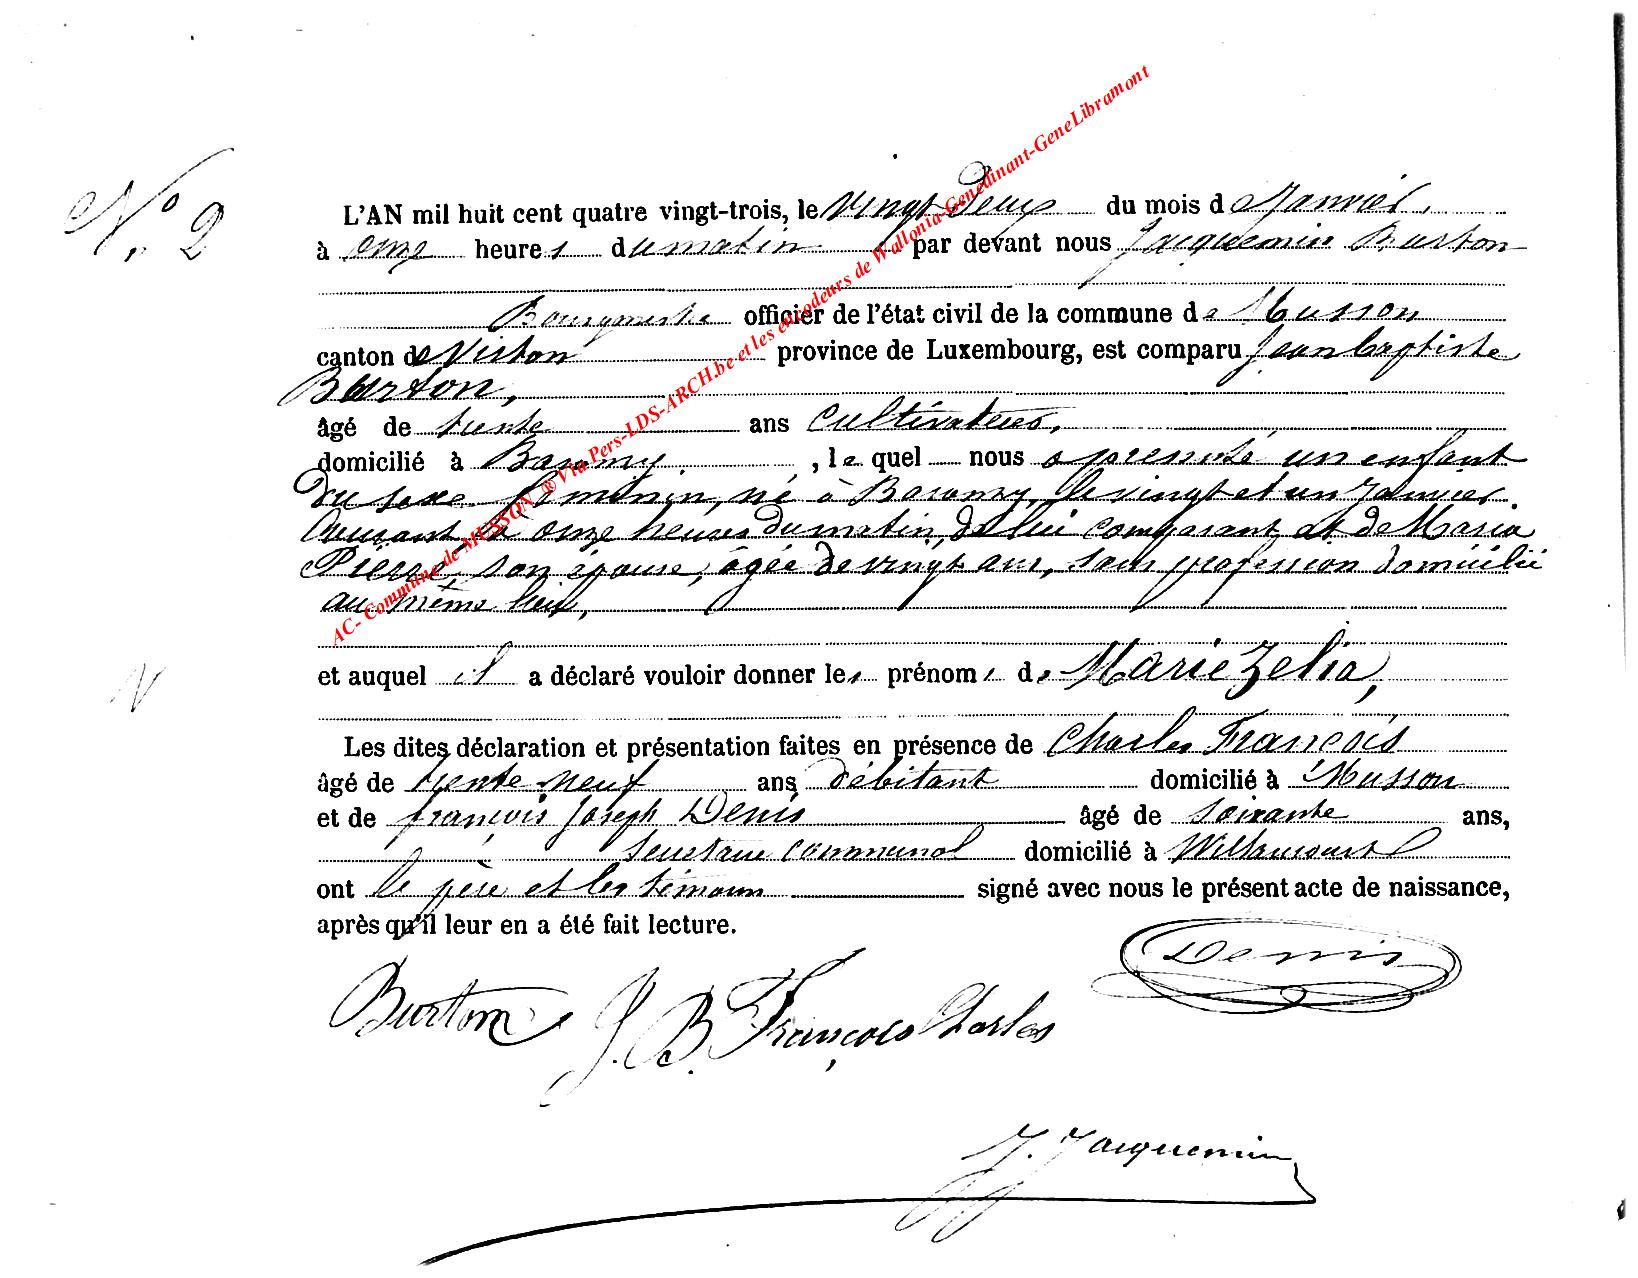 N° 2
L'AN mil huit cent quatre vingt-trois, le Vingt Deux du mois de Janvier,
à onze heures du matin par devant nous Jacquemin Burton
Bourgmestre officier de l'état civil de la commune de Musson
canton de Virton province de Luxembourg, est comparu Jean baptiste
Burton,
âgé de trente ans Cultivateur,
domicilié à Baranzy, lequel nous a présenté un enfant
du sexe féminin, né à Baranzy, le vingt et un Janvier
Courant à onze heures du matin, de lui comparant et de Maria
Pierre, son épouse, âgée de vingt ans, sans profession domicilié
au même lieu,
et auquel il a déclaré vouloir donner les prénoms de Marie Zelia,
Les dites déclaration et présentation faites en présence de Charles François
âgé de trente neuf ans débitant domicilié à Musson
et de françois Joseph Denis âgé de soixante ans,
Secrétaire Communal domicilié à Willancourt
ont le père et les témoins signé avec nous le présent acte de naissance,
après qu'il leur en a été fait lecture.
Denis
Burton J. B. François Charles
J. Jacquemin
N
AC- Commune de MUSSON ® Via Pers-LDS-ARCH.be et les encodeurs de Wallonia-Genedinant-GeneLibramont